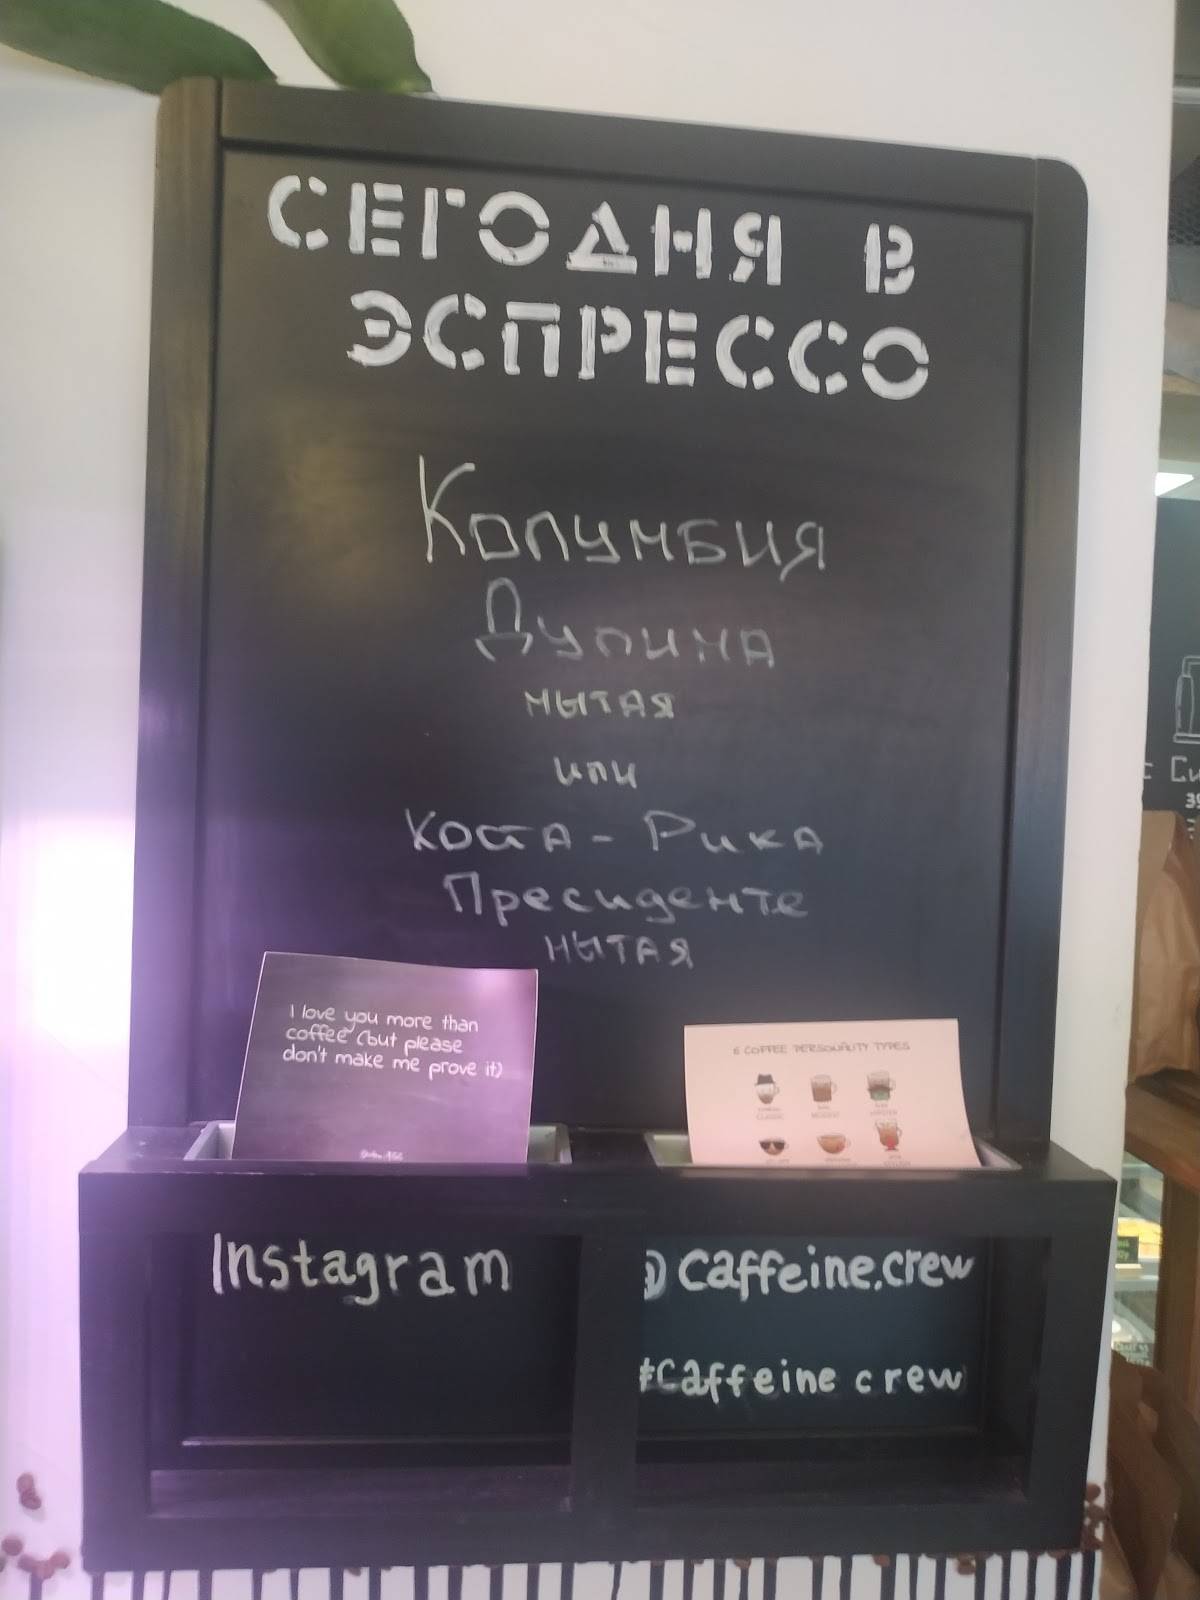 СЕГОДНЯ В
ЭСПРЕССО
Колумбия
Дулима
мытая
или
Коста-Рика
Пресиденте
мытая
I love you more than
coffee (but please
don't make me prove it)
6 COFFEE PERSONALITY TYPES
CLASSIC
HIPSTER
Instagram
@caffeine.crew
#caffeine crew